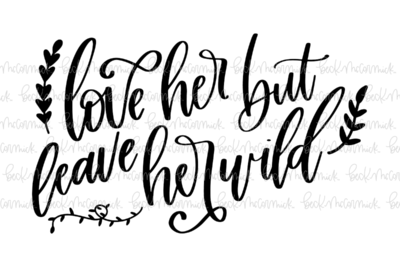 love her but
leave her wild